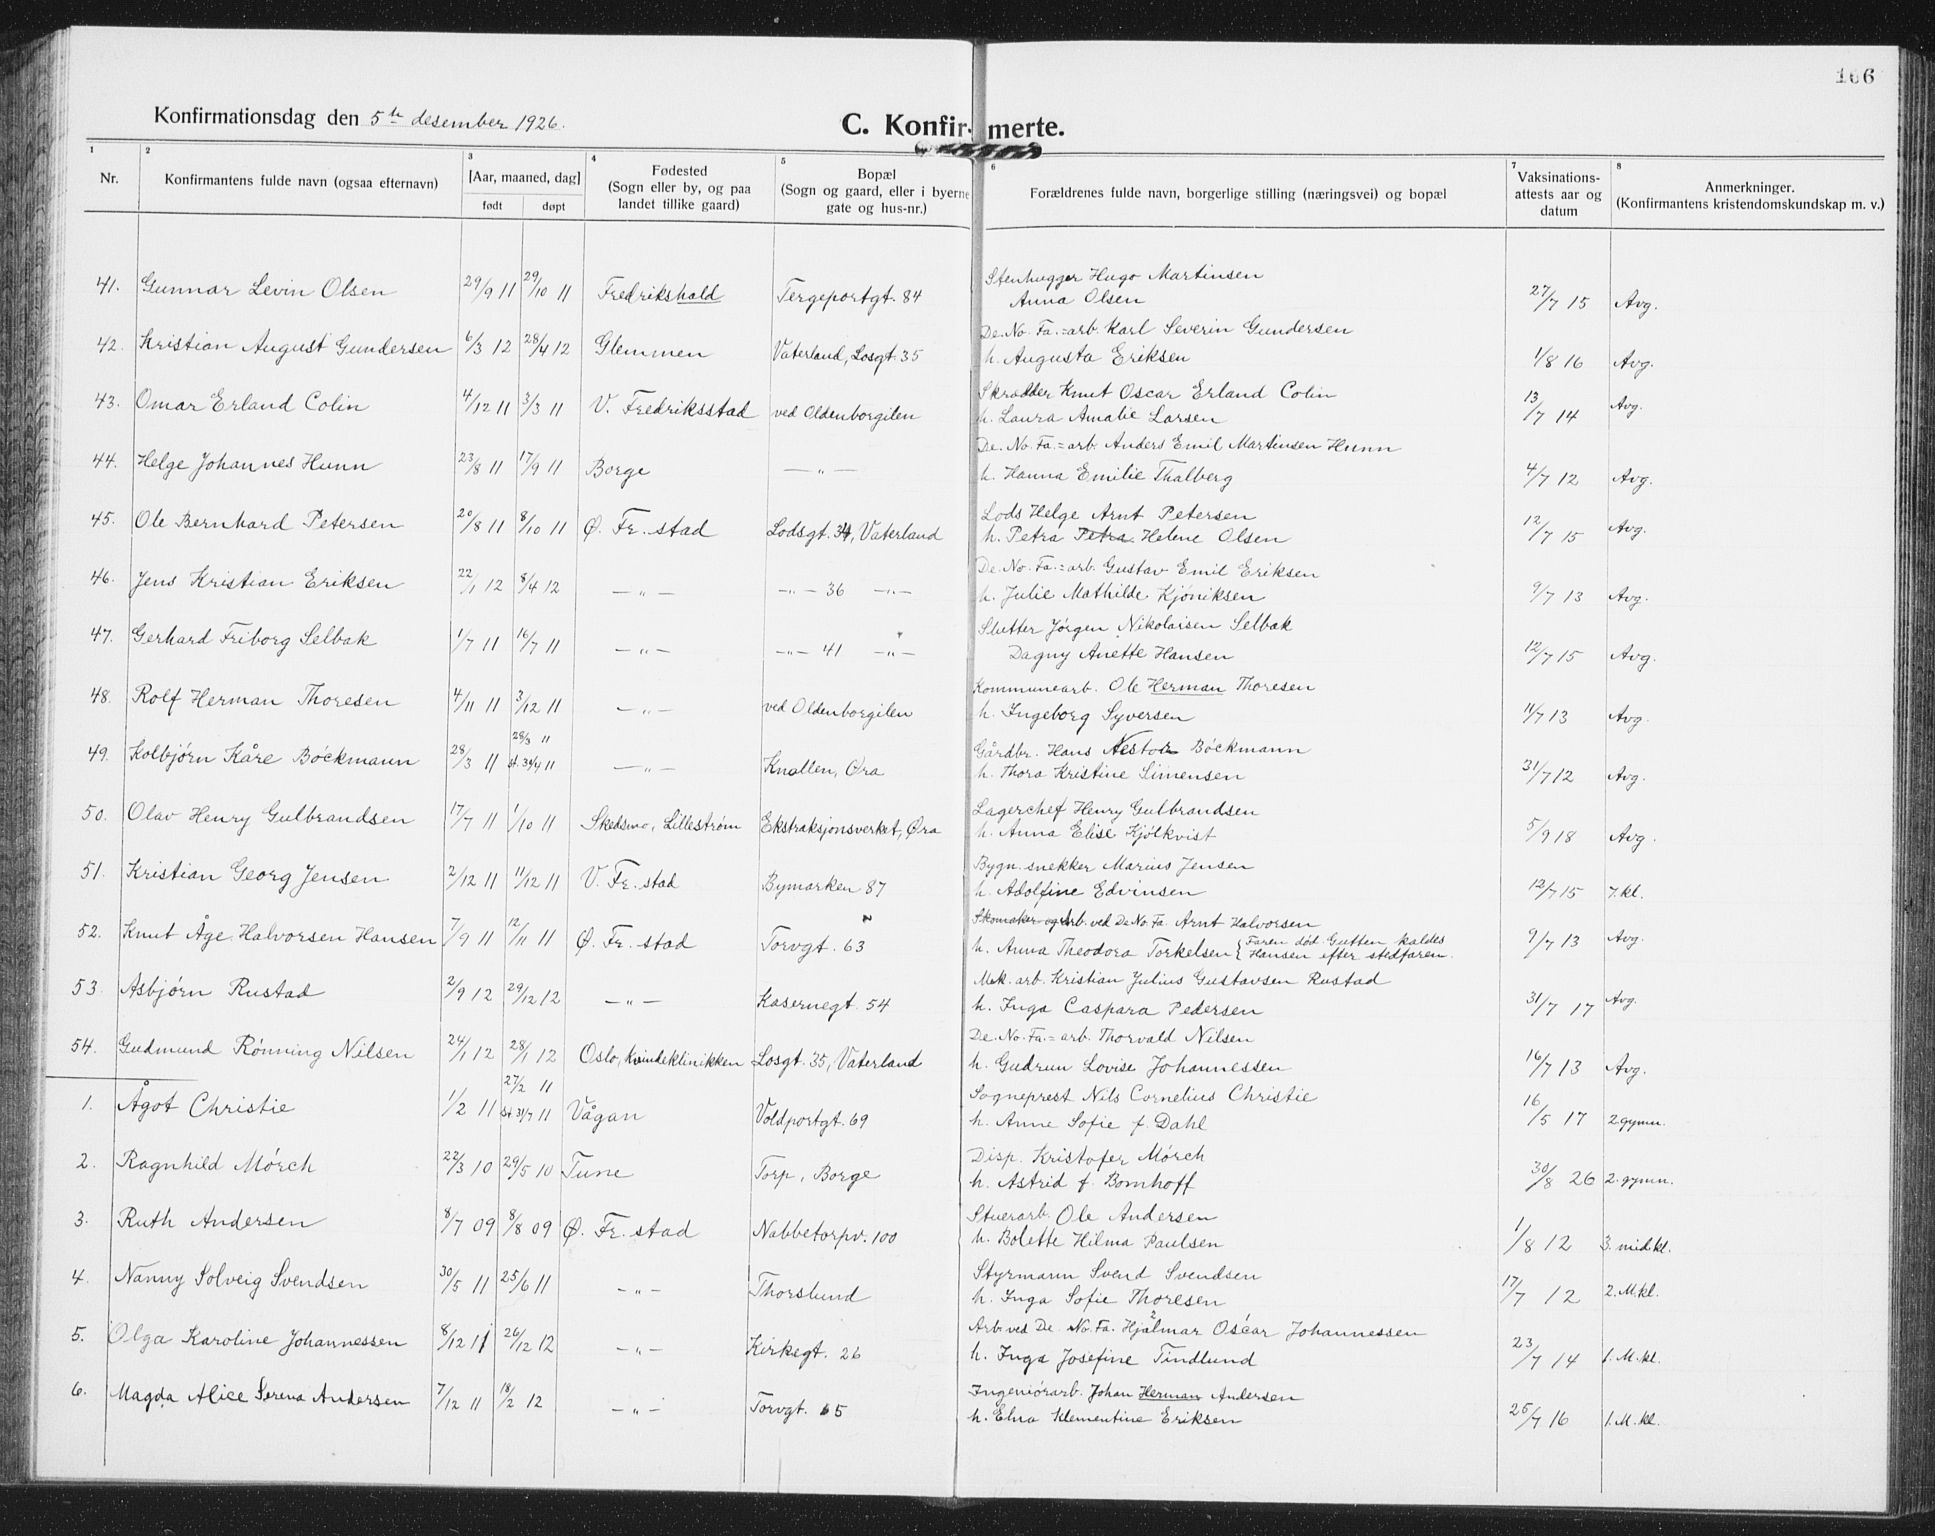 166
Konfirmationsdag den 5te desember 1926.
C. Konfirmerte.
1 2 3 4 5 6 7 8
Nr. Konfirmantens fulde navn (ogsaa efternavn) [Aar, maaned, dag] født døpt Fødested (Sogn eller by, og paa landet tillike gaard) Bopæl (Sogn og gaard, eller i byerne gate og hus-nr.) Forældrenes fulde navn, borgerlige stilling (næringsvei) og bopæl Vaksinations-attests aar og datum Anmerkninger. (Konfirmantens kristendomskundskap m. v.)
41. Gunnar Levin Olsen 29/9 11 29/10 11 Fredrikshald Tergeportgt. 84 Stenhugger Hugo Martinsen
Anna Olsen 27/7 15 Avg.
42. Kristian August Gundersen 6/3 12 28/4 12 Glemmen Vaterland, Losgt. 35 De. No. Fa.=arb. Karl Severin Gundersen
h. Augusta Eriksen 1/8 16 Avg.
43. Omar Erland Colin 4/12 11 3/3 11 V. Fredriksstad ved Oldenborgilen Skrædder Knut Oscar Erland Colin
h. Laura Amalie Larsen 13/7 14 Avg.
44. Helge Johannes Hunn 23/8 11 17/9 11 Borge —"— De. No. Fa.=arb. Anders Emil Martinsen Hunn
h. Hanna Emilie Thalberg 4/7 12 Avg.
45. Ole Bernhard Petersen 20/8 11 8/10 11 Ø. Fr. stad Lodsgt. 34, Vaterland Lods Helge Arnt Petersen
h. Petra Petra Helene Olsen 12/7 15 Avg.
46. Jens Kristian Eriksen 22/1 12 8/4 12 —"— —"— 36 —"— De. No. Fa.=arb. Gustav Emil Eriksen
h. Julie Mathilde Kjöniksen 9/7 13 Avg.
47. Gerhard Friborg Selbak 1/7 11 16/7 11 —"— —"— 41 —"— Slutter Jörgen Nikolaisen Selbak
Dagny Anette Hansen 12/7 15 Avg.
48. Rolf Herman Thoresen 4/11 11 3/12 11 —"— ved Oldenborgilen Kommunearb. Ole Herman Thoresen
h. Ingeborg Syversen 11/7 13 Avg.
49. Kolbjörn Kåre Böckmann 28/3 11 28/3 11 —"— Knollen, Øra Gårdbr. Hans Nestor Böckmann
h. Thora Kristine Simensen 31/7 12 Avg.
50. Olav Henry Gulbrandsen 17/7 11 1/10 11 Skedsmo, Lilleström Ekstraksjonsverket, Øra Lagerchef Henry Gulbrandsen
h. Anna Elise Kjölkvist 5/9 18 Avg.
51. Kristian Georg Jensen 2/12 11 11/12 11 V. Fr. stad Bymarken 87 Bygn. snekker Marius Jensen
h. Adolfine Edvinsen 12/7 15 7. kl.
52. Knut Åge Halvorsen Hansen 7/9 11 12/11 11 Ø. Fr. stad Torvgt. 63 Skomaker og Arb. ved De No. Fa. Arnt Halvorsen
h. Anna Theodora Torkelsen { Faren död. Gutten kaldes Hansen efter stedfaren. 9/7 13 Avg.
53. Asbjörn Rustad 2/9 12 29/12 12 —"— Kasernegt. 54 Mek. arb. Kristian Julius Gustavsen Rustad
h. Inga Caspara Pedersen 31/7 17 Avg.
54. Gudmund Rönning Nilsen 24/1 12 28/1 12 Oslo, Kvindeklinikken Losgt. 35, Vaterland De. No. Fa.=arb. Thorvald Nilsen
h. Gudrun Lovise Johannessen 16/7 13 Avg.
1. Ågot Christie 1/2 11 27/2 11 st. 31/7 11 Vågan Voldportgt. 69 Sogneprest Nils Cornelius Christie
h. Anne Sofie f. Dahl 16/5 17 2 gymn.
2. Ragnhild Mörch 22/3 10 29/5 10 Tune Torp, Borge Disp. Kristofer Mörch
h. Astrid f. Bomhoff 30/8 26 2. gymn.
3. Ruth Andersen 8/7 09 8/8 09 Ø. Fr. stad Nabbetorpv. 100 Stuerarb. Ole Andersen
h. Bolette Hilma Paulsen 1/8 12 3. mid. kl.
4. Nanny Solveig Svendsen 30/5 11 25/6 11 —"— Thorslund Styrmann Svend Svendsen
h. Inga Sofie Thoresen 17/7 12 2. M.kl.
5. Olga Karoline Johannessen 8/12 11 26/12 12 —"— Kirkegt. 26 Arb. ved De. No. Fa. Hjalmar Oscar Johannessen
h. Inga Josefine Tindlund 23/7 14 1. M. kl.
6. Magda Alice Serena Andersen 7/12 11 18/2 12 —"— Torvgt. 65 Ingeniörarb. Johan Herman Andersen
h. Elna Klementine Eriksen 25/7 16 1. M. kl.